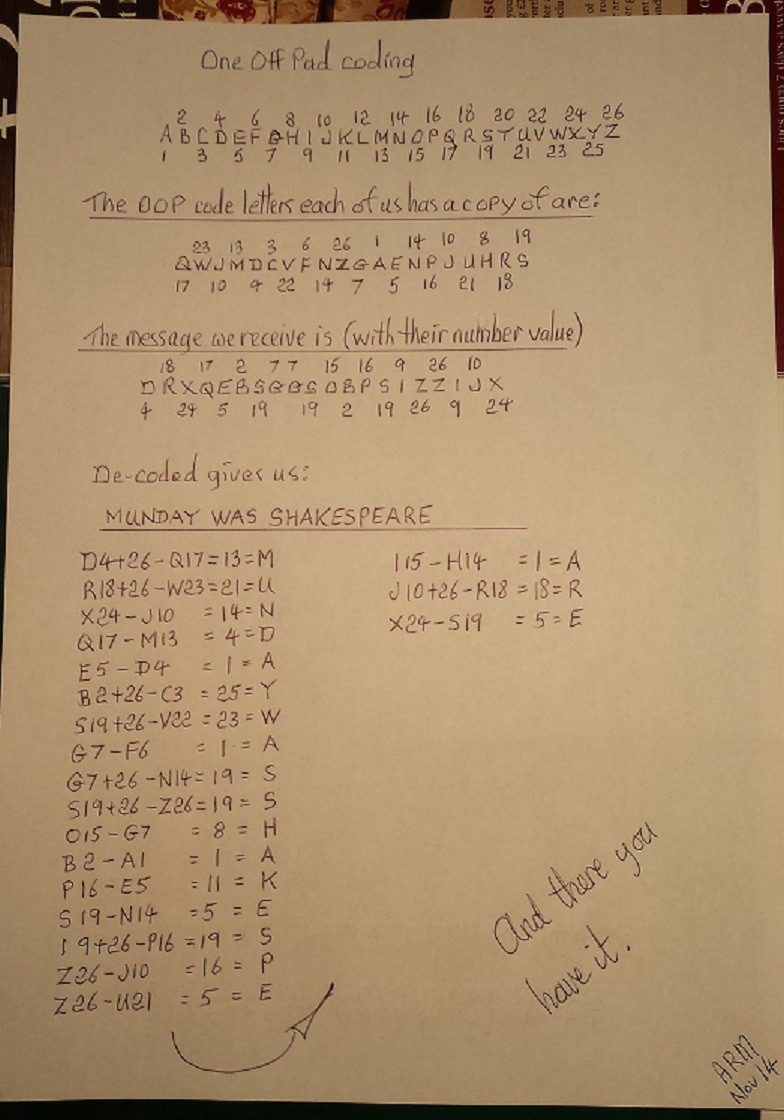 One Off Pad coding
2 4 6 8 10 12 14 16 18 20 22 24 26
A B C D E F G H I J K L M N O P Q R S T U V W X Y Z
1 3 5 7 9 11 13 15 17 19 21 23 25
The OOP code letters each of us has a copy of are:
23 13 3 6 26 1 14 10 8 19
Q W J M D C V F N Z G A E N P J U H R S
17 10 4 22 14 7 5 16 21 18
The message we receive is (with their number value)
18 17 2 7 7 15 16 9 26 10
D R X Q E B S G G S O B P S I Z Z I J X
4 24 5 19 19 2 19 26 9 24
De-coded gives us:
MUNDAY WAS SHAKESPEARE
D4+26-Q17=13=M
R18+26-W23=21=U
X24-J10 =14=N
Q17-M13 = 4=D
E5-D4 = 1= A
B2+26-C3 = 25= Y
S19+26-V22 = 23= W
G7-F6 = 1 = A
G7+26-N14= 19 = S
S19+26-Z26=19 = S
O15-G7 = 8 = H
B2-A1 = 1 = A
P16-E5 = 11 = K
S19-N14 =5 = E
I9+26-P16 =19 = S
Z26-J10 =16 = P
Z26-U21 = 5 = E
I15-H14 =1= A
J10+26-R18 =18= R
X24-S19 = 5= E
And there you
have it.
ARM
Nov 14